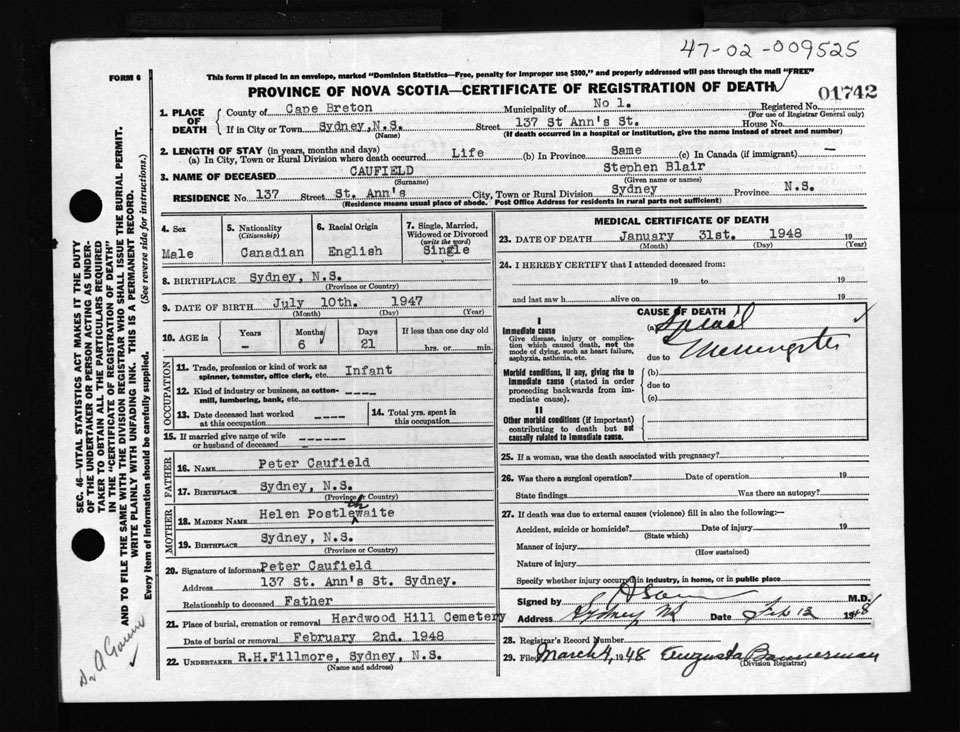 47-02-009525
FORM 6
This form if placed in an envelope, marked "Dominion Statistics—Free, penalty for improper use $300," and properly addressed will pass through the mail "FREE"
PROVINCE OF NOVA SCOTIA—CERTIFICATE OF REGISTRATION OF DEATH
01742
1. PLACE OF DEATH County of Cape Breton Municipality of No 1. Registered No.
(For use of Registrar General only)
If in City or Town Sydney, N.S. Street 137 St Ann's St. House No.
(Name) (If death occurred in a hospital or institution, give the name instead of street and number)
2. LENGTH OF STAY (in years, months and days)
(a) In City, Town or Rural Division where death occurred Life (b) In Province Same (c) In Canada (if immigrant) —
3. NAME OF DECEASED CAUFIELD Stephen Blair
(Surname) (Given name or names)
RESIDENCE No 137 Street St. Ann's City, Town or Rural Division Sydney Province N.S.
(Residence means usual place of abode. Post Office Address for residents in rural parts not sufficient)
4. Sex
Male
5. Nationality
(Citizenship)
Canadian
6. Racial Origin
English
7. Single, Married, Widowed or Divorced
(write the word)
Single
8. BIRTHPLACE Sydney, N.S.
(Province or Country)
9. DATE OF BIRTH July 10th. 1947
(Month) (Day) (Year)
10. AGE in Years Months Days If less than one day old
- 6 21 hrs. or min.
OCCUPATION
11. Trade, profession or kind of work as spinner, teamster, office clerk, etc. Infant
12. Kind of industry or business, as cotton-mill, lumbering, bank, etc. ----
13. Date deceased last worked at this occupation ----
14. Total yrs. spent in this occupation
15. If married give name of wife or husband of deceased ------
FATHER
16. NAME Peter Caufield
17. BIRTHPLACE Sydney, N.S.
(Province or Country)
MOTHER
18. MAIDEN NAME Helen Postlewaite
th
19. BIRTHPLACE Sydney, N.S.
(Province or Country)
20. Signature of informant Peter Caufield
Address 137 St. Ann's St. Sydney.
Relationship to deceased Father
21. Place of burial, cremation or removal Hardwood Hill Cemetery
Date of burial or removal February 2nd. 1948
22. UNDERTAKER R.H.Fillmore, Sydney, N.S.
(Name and address)
MEDICAL CERTIFICATE OF DEATH
23. DATE OF DEATH January 31st. 1948 19
(Month) (Day) (Year)
24. I HEREBY CERTIFY that I attended deceased from:
19 to 19
and last saw h alive on 19
CAUSE OF DEATH
I
Immediate cause
Give disease, injury or complication which caused death, not the mode of dying, such as heart failure, asphyxia, asthenia, etc.
(a)
due to
Morbid conditions, if any, giving rise to immediate cause (stated in order proceeding backwards from immediate cause).
(b)
due to
(c)
II
Other morbid conditions (if important) contributing to death but not causally related to immediate cause.
25. If a woman, was the death associated with pregnancy?
26. Was there a surgical operation? Date of operation 19
State findings Was there an autopsy?
27. If death was due to external causes (violence) fill in also the following:—
Accident, suicide or homicide? Date of injury 19
(State which)
Manner of injury
(How sustained)
Nature of injury
Specify whether injury occurred in industry, in home, or in public place
Signed by M.D.
Address Sydney NS Date Feb 12 1948
28. Registrar's Record Number
29. Filed March 4, 1948 Augusta Bannerman
(Division Registrar)
SEC. 46—VITAL STATISTICS ACT MAKES IT THE DUTY
OF THE UNDERTAKER OR PERSON ACTING AS UNDER-
TAKER TO OBTAIN ALL THE PARTICULARS REQUIRED
IN THE "CERTIFICATE OF REGISTRATION OF DEATH"
AND TO FILE THE SAME WITH THE DIVISION REGISTRAR WHO SHALL ISSUE THE BURIAL PERMIT.
WRITE PLAINLY WITH UNFADING INK. THIS IS A PERMANENT RECORD.
Every item of information should be carefully supplied. (See reverse side for instructions.)